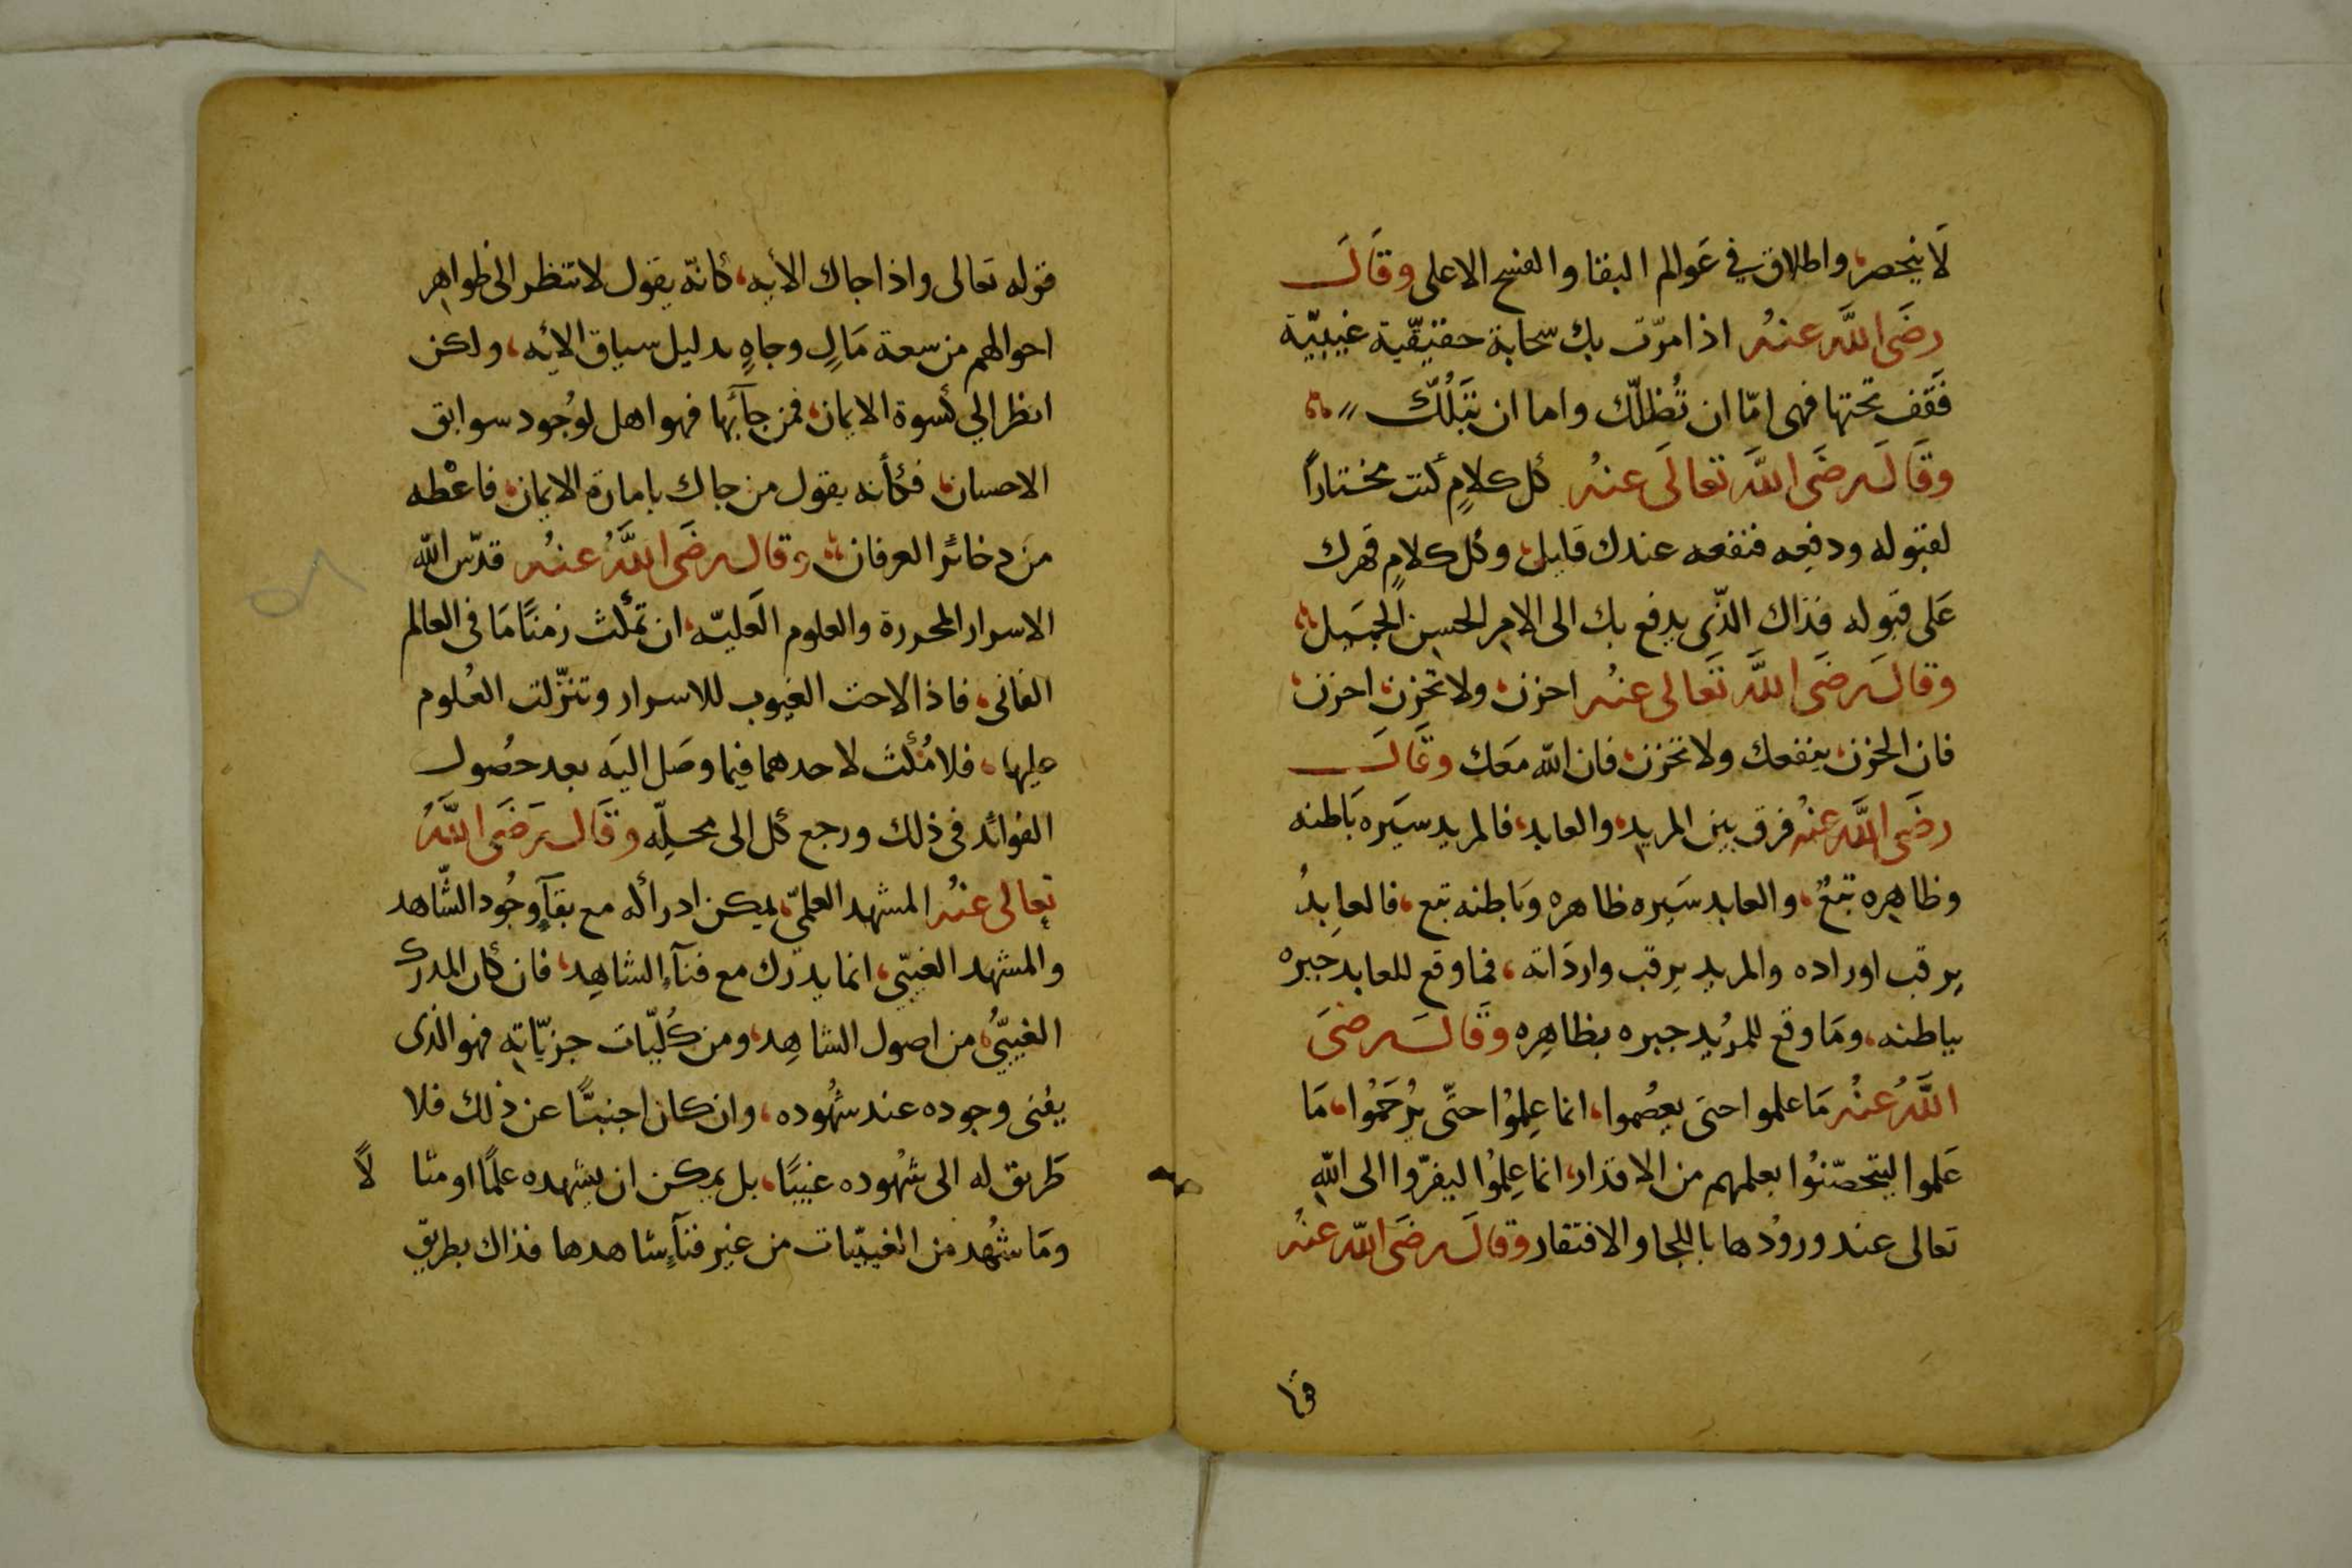 لَا ينحصر، واطلاق في عَوالم البقا والفسح الاعلى وقَالَ
رضَى اللَّه عنهُ اذا مرّت بك سحابة حقيقيّة غيبيّة
فَقف تحتها فهى امّا ان تُظلّك واما ان تبَلُّك
وقَالَ رضَى اللَّه تعالَى عنهُ كل كلامٍ كنت مختاراً
لقبوله ودفعه فنفعه عندك قَليل، وكل كلامٍ قهرك
عَلى قبوله فذاك الذّى يدفع بك الى الامر الحسن الجميل
وقالَ رضَى اللَّه تَعالى عنهُ احزن، ولا تحزن، احزن،
فان الحزن، ينفعك ولا تحزن، فان الله معَك وقَالَ
رضَى اللَّه عنهُ فرق بين المريد، والعابد، فالمريد سَيره بَاطنه
وظاهِره تبعٌ، والعابد سَيره ظاهره وبَاطنه تبع، فالعابِدُ
يرقب اوراده والمريد يرقب وارداته، فما وقع للعابد جبره
بباطنه، ومَا وقع للمرُيد جبره بظاهِره وقَالَ رضىَ
اللَّهُ عنهُ مَا علموا حتىَ يعصُموا، انما عِلِموُا حتّى يُرحَمُوا، مَا
عَلموا ليتحصّنوُا بعلمهم من الاقدار، انما عِلِموُا ليفرّوا الى اللهِ
تعالى عند وروُدها باللجا والافتقار وقالَ رضَى اللّه عنهُ
فى
قوله تعالى واذا جاك الآيه، كانّه يقول لا تنظر الى ظواهِر
احوالهم من سعة مَالٍ وجاهٍ بدليل سياق الايٓه، ولكن
انظر الي كسوة الايمان، فمن جآ بها فهو اهل لوجُود سوابق
الاحسان، فكأنه يقول من جاك بامارة الايمان، فاعْطه
من دخائر العرفان، وقالَ رضَى اللَّهُ عنهُ قدّس اللّه
الاسرار المحررة والعلوم العَليّه، ان تمكث زمنًا مَا فى العالم
الفانى، فاذا لاحت الغيوب للاسرار وتنزّلت العُلوم
عليها، فلا مُكث لاحدهما فيما وصَل اليَه بعد حصُول
الفوائد فى ذلك ورجع كل الى محلِّه وقَالَ رَضَى اللَّهُ
تعالى عنهُ المشهد العلمىّ، يمكن ادراكه مع بقآءِ وجُود الشّاهد
والمشهد الغيبّى، انما يدرَك مع فنآءِ الشاهِد، فان كان المدرك
الغيبىُّ، من اصول الشاهِد، ومن كُليّات جزيّاتِه فهو الذى
يفنى وجوده عند شهُوده، وان كان اجنبيًّا عن ذلك فلا
طَريق له الى شهُوده غيبيًا، بل يمكن ان يشهده علمًا او مثا لاً
ومَا شهُد من الغيبيّات من غير فنآءِ شاهدها فذاك بطريق